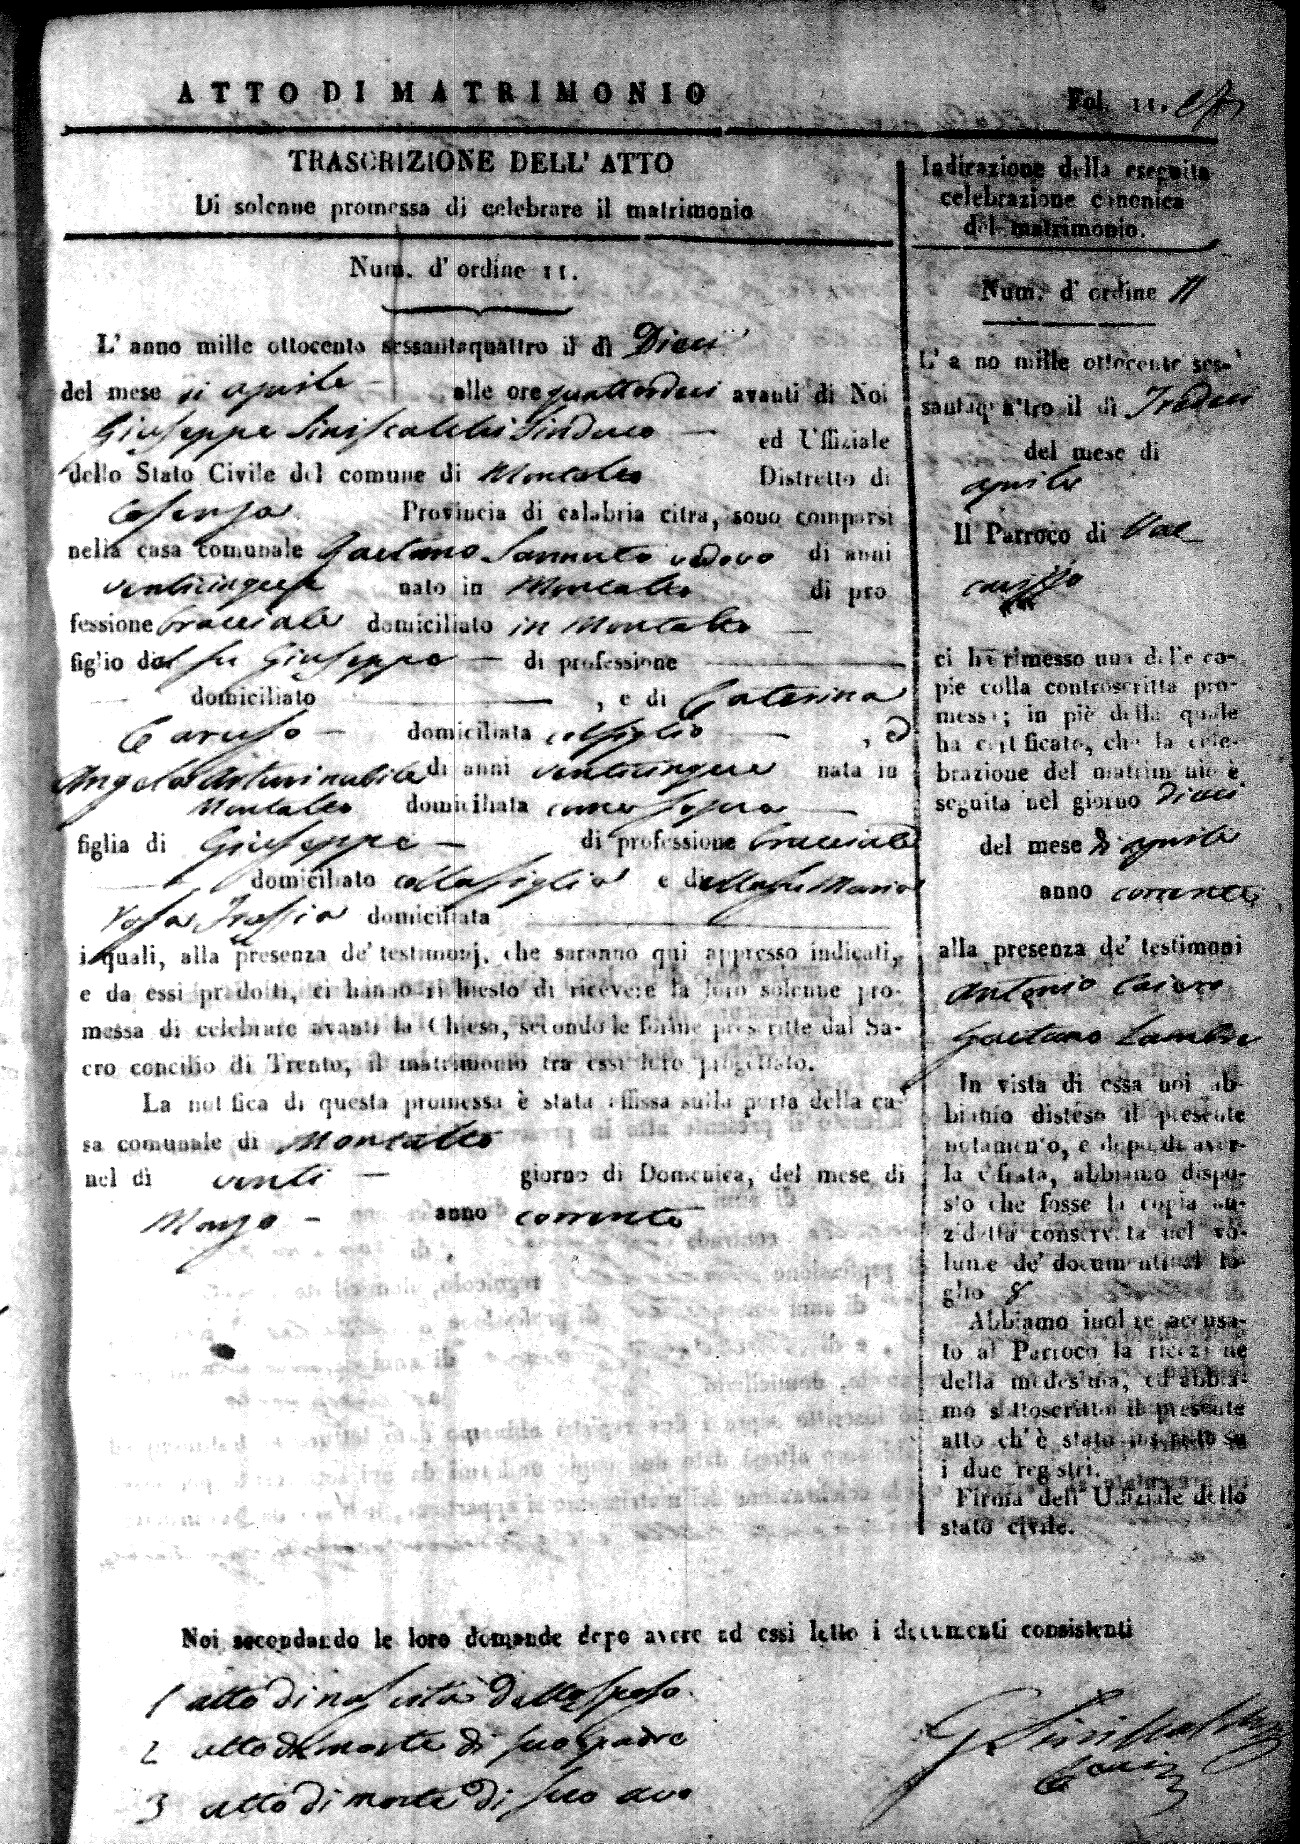 ATTO DI MATRIMONIO
Fol. 11.
TRASCRIZIONE DELL' ATTO
Di solenne promessa di celebrare il matrimonio
Num. d' ordine 11.
L' anno mille ottocento sessantaquattro il dì Dieci
del mese di aprile - alle ore quattordeci avanti di Noi
Giuseppe Siniscalchi Sindaco - ed Uffiziale
dello Stato Civile del comune di Montalto Distretto di
Cosenza Provincia di calabria citra, sono comparsi
nella casa comunale Gaetano Sannuto vedovo di anni
venticinque nato in Montalto di pro
fessione bracciale domiciliato in Montalto -
figlio del fu Giuseppe - di professione
domiciliato , e di Caterina
Caruso - domiciliata col figlio - , e
Angela nubile di anni venticinque nata in
Montalto domiciliata come sopra -
figlia di Giuseppe - di professione bracciale
domiciliato colla figlia e della fu Maria
Rosa domiciliata
i quali, alla presenza de' testimonj, che saranno qui appresso indicati,
e da essi prodotti, ci hanno richiesto di ricevere la loro solenne pro-
messa di celebrare avanti la Chiesa, secondo le forme prescritte dal Sa-
cro concilio di Trento, il matrimonio tra essi loro progettato.
La notifica di questa promessa è stata affissa sulla porta della ca-
sa comunale di Montalto
nel dì venti - giorno di Domenica, del mese di
Marzo - anno corrente
Indicazione della eseguita
celebrazione canonica
del matrimonio.
Num. d' ordine 11
L' a no mille ottocento ses-
santaquattro il dì Tredeci
del mese di
aprile
Il Parroco di Vac
carizzo
ci ha rimesso una delle co-
pie colla controscritta pro-
messa; in piè della quale
ha certificato, che la cele-
brazione del matrimonio è
seguita nel giorno dieci
del mese di aprile
anno corrente
alla presenza de' testimoni
Antonio
Gaetano
In vista di essa noi ab-
biamo disteso il presente
notamento, e dopo di aver-
la cifrata, abbiamo dispo-
sto che fosse la copia an-
zidetta conservata nel vo-
lume de' documenti al fo-
glio 8
Abbiamo inoltre accusa-
to al Parroco la ricezione
della medesima, ed abbia-
mo sottoscritto il presente
atto ch' è stato inserito su
i due registri.
Firma dell' Uffiziale dello
stato civile.
Noi secondando le loro domande dopo avere ad essi letto i documenti consistenti
1 atto di nascita dello sposo
2 atto di morte di suo padre
3 atto di morte di suo avo
G Siniscalchi